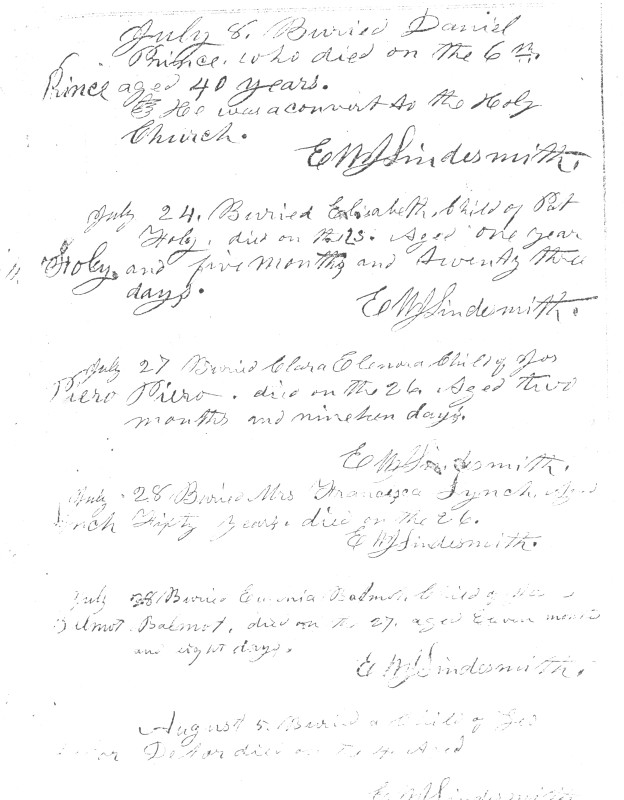 July 8. Buried Daniel
Prince, who died on the 6th.
Prince aged 40 years.
He was a convert to the Holy
Church.
E W J Lindesmith.
July 24. Buried Elisabeth, Child of Pat
Foly, died on the 23. Aged one year
Foley, and five months and twenty three
days.
E W J Lindesmith.
July 27 Buried Clara Elenora Child of Jos
Piero Piero. died on the 26. Aged two
months and nineteen days.
E W J Lindesmith.
July 28 Buried Mrs Francisca Lynch. Aged
Fifty years. died on the 26.
E W J Lindesmith.
July 28 Buried Child of
Balmot, died on the 27. aged months
and eight days.
E W J Lindesmith.
August 5. Buried a Child of Geo
died on the 4. Aged
E W J Lindesmith